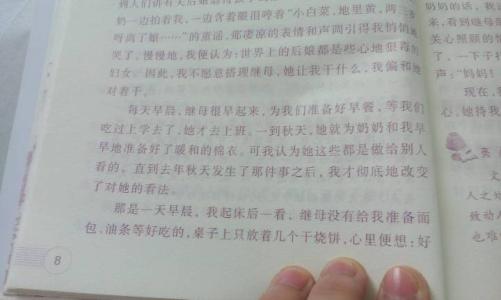 别人们讲有天后娘
奶一边拍着我，一边含着眼泪哼着“小白菜，地里黄，两三岁
呀离了娘……”的童谣，那凄凉的表情和声调引得我悄悄地
哭了。慢慢地，我便认为：世界上的后娘都是些心地狠毒的
妇女。因此，我不愿意搭理继母，她让我干什么，我偏和她
对着干。
每天早晨，继母很早起来，为我们准备好早餐，等我们
吃过上学去了，她才去上班。一到秋天，她就为奶奶和我早
早地准备好了暖和的棉衣。可我认为她这些都是做给别人
看的。直到去年秋天发生了那件事之后，我才彻底地改变
了对她的看法。
那是一天早晨，我起床后一看，继母没有给我准备面
包、油条等好吃的，桌子上只放着几个干烧饼，心里便想：好
8
奶奶的话，我
来，看到继母
关心照顾的
了，一下子
声：“妈妈！
现在，
心，她待我
文
人之
致动人
也难